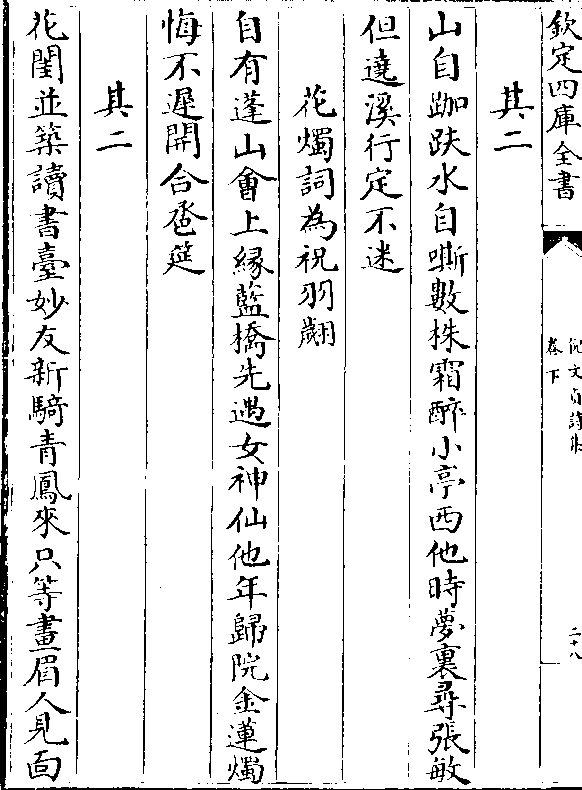 欽定四庫全書
倪文貞詩集
卷下
二十八
其二
山自跏趺水自嘶數株霜醉小亭西他時夢裏尋張敏
但遶溪行定不迷
花燭詞為祝羽翽
自有蓬山會上緣藍橋先遇女神仙他年歸院金蓮燭
悔不遲開合卺筵
其二
花閨並築讀書臺妙友新騎青鳳來只等畫眉人見面